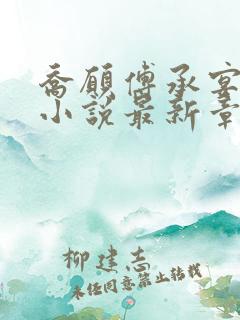 乔愿傅承宴
小说最新章
柳建志
未经同意禁止转载